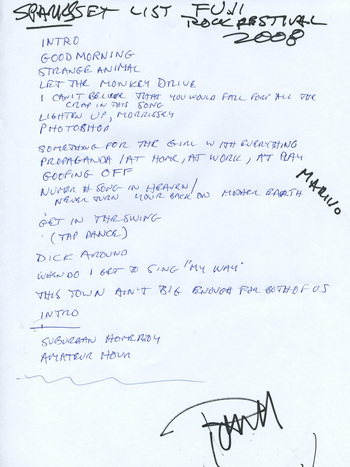 SPARKS SET LIST FUJI
ROCK FESTIVAL
2008
INTRO
GOOD MORNING
STRANGE ANIMAL
LET THE MONKEY DRIVE
I CAN'T BELIEVE THAT YOU WOULD FALL FOR ALL THE
CRAP IN THIS SONG
LIGHTEN UP, MORRISSEY
PHOTOSHOP
SOMETHING FOR THE GIRL WITH EVERYTHING
PROPAGANDA / AT HOME, AT WORK, AT PLAY
GOOFING OFF
NUMBER # SONG IN HEAVEN /
NEVER TURN YOUR BACK ON MOTHER EARTH
GET IN THE SWING
(TAP DANCE)
DICK AROUND
WHEN DO I GET TO SING "MY WAY"
THIS TOWN AIN'T BIG ENOUGH FOR BOTH OF US
INTRO
SUBURBAN HOMEBOY
AMATEUR HOUR